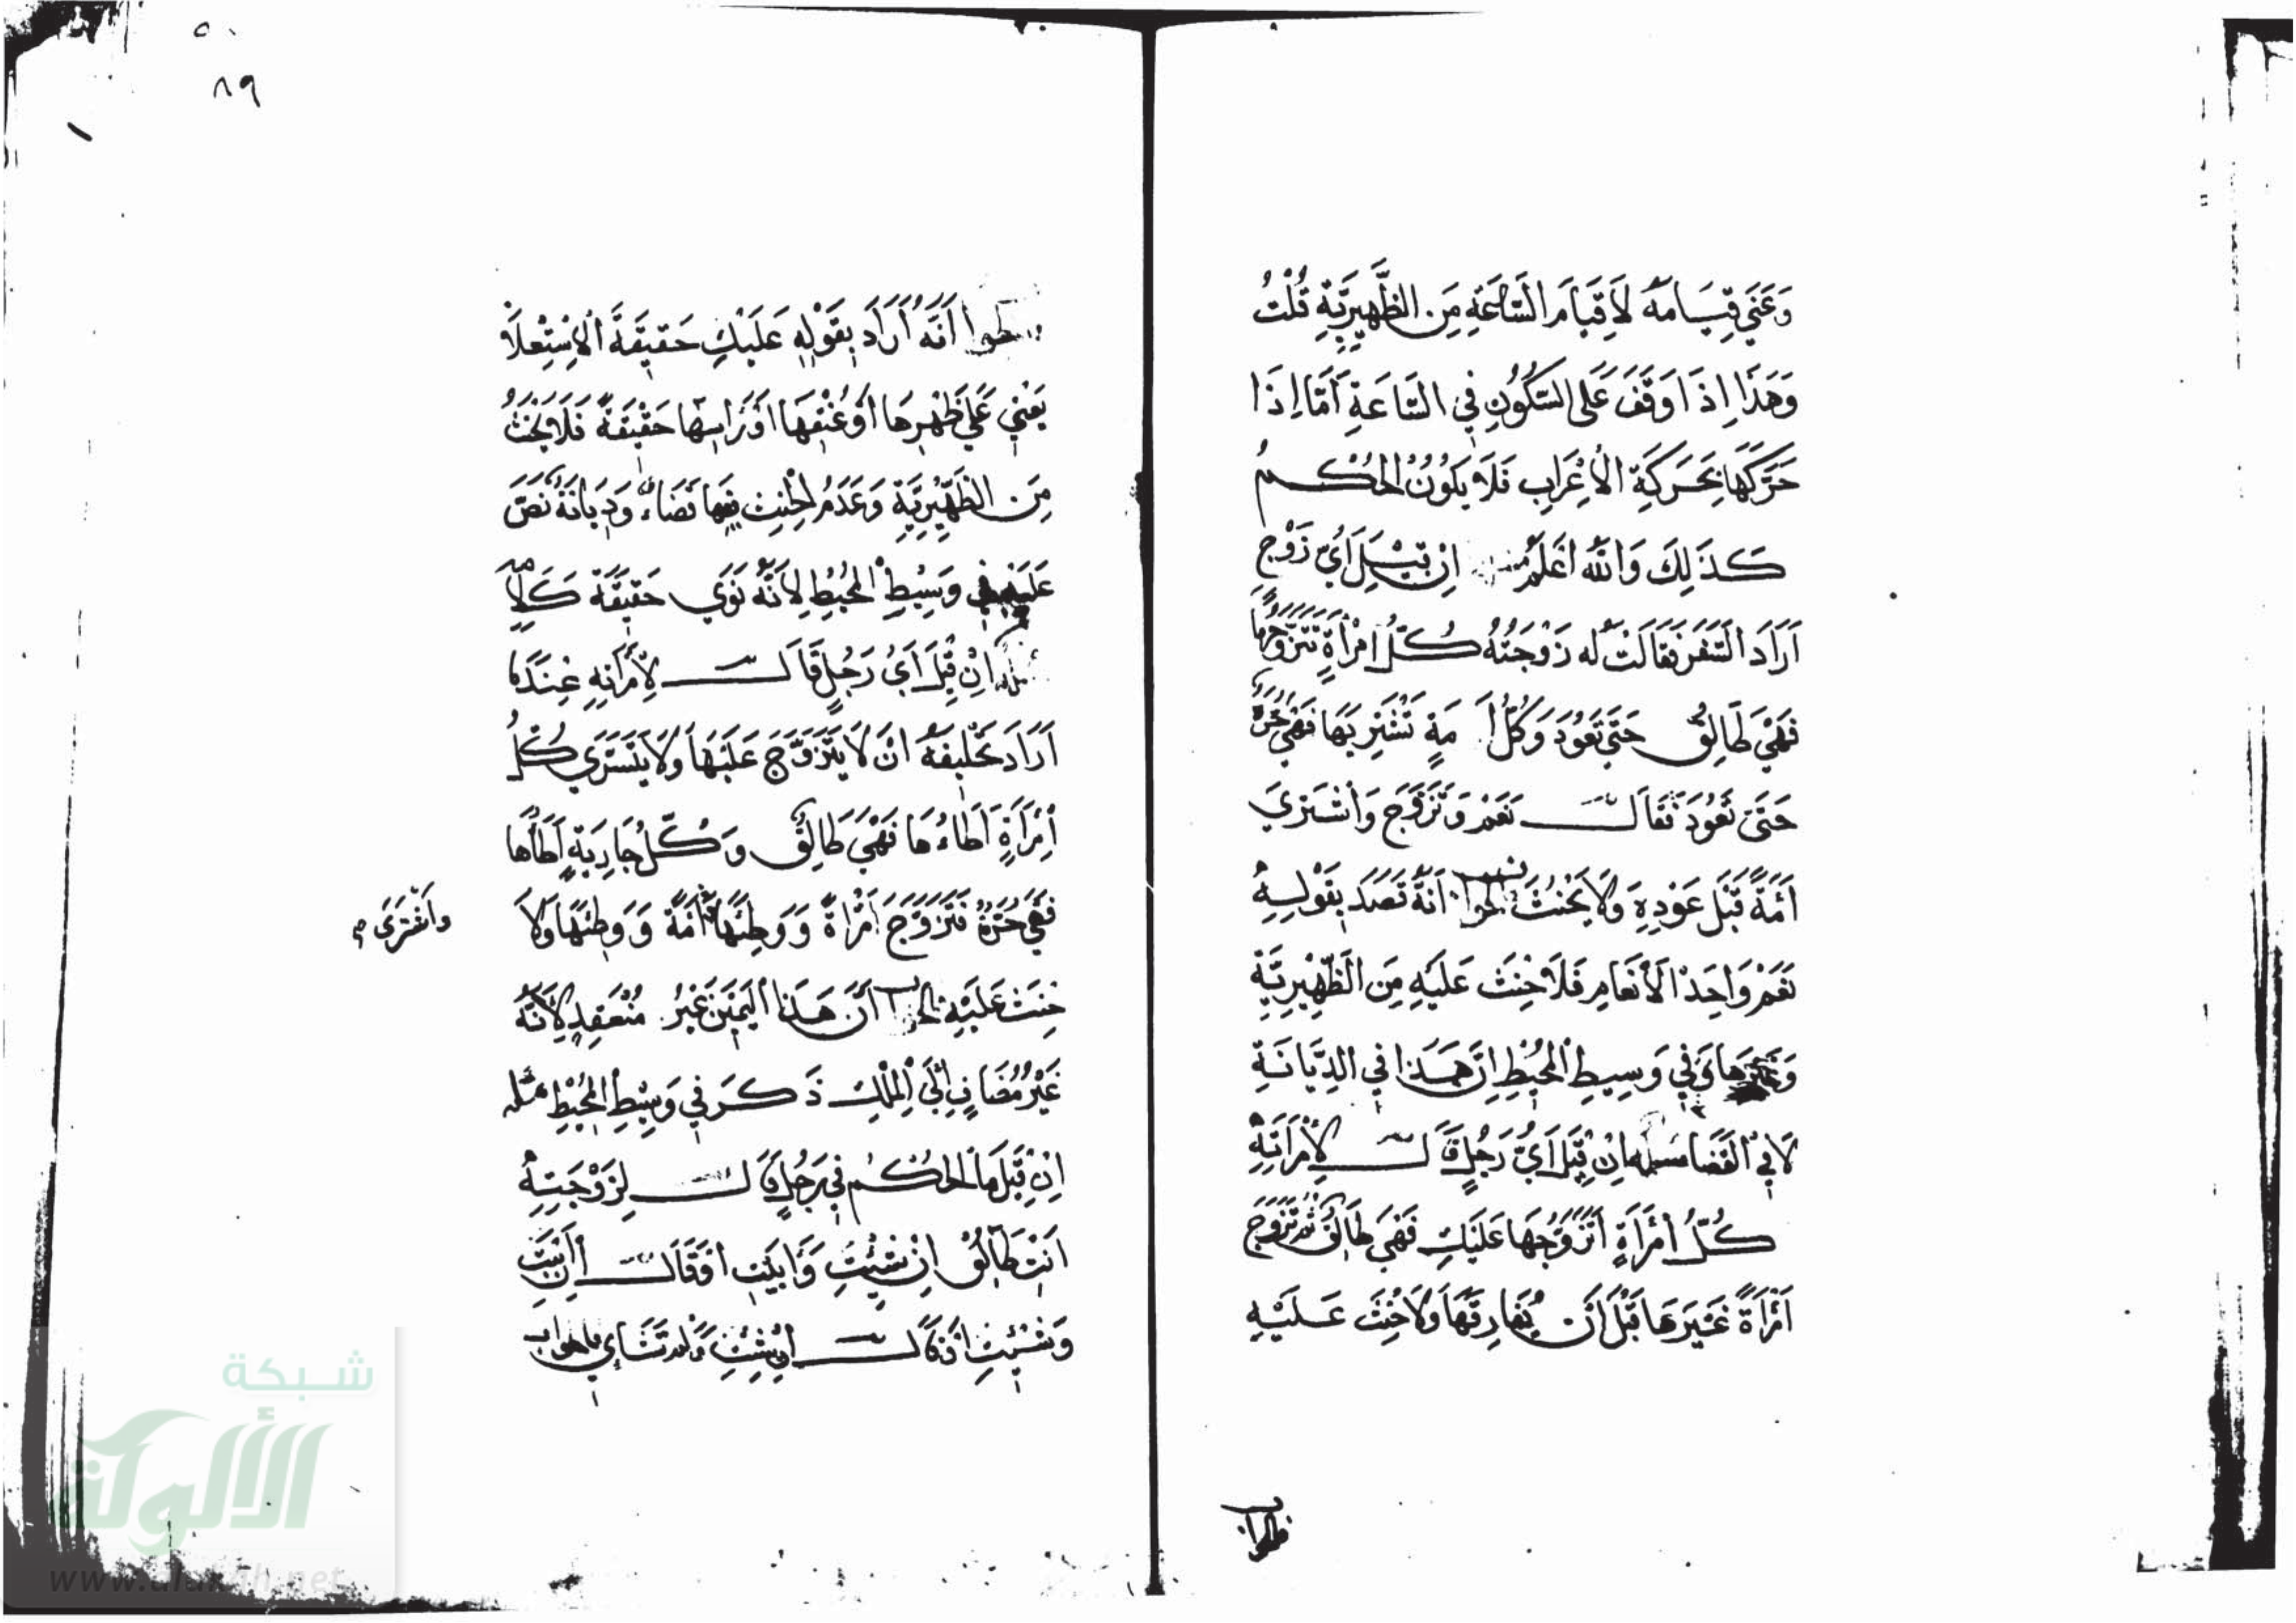 وَعَنَي قِيَامَهُ لَا قِيَامَ السَّاعَةِ مِنَ الظَّهِيرِيَّةِ قُلْتُ
وَهَذَا إِذَا وَقَفَ عَلَى السُّكُونِ فِي السَّاعَةِ أَمَّا إِذَا
حَرَّكَهَا بِحَرَكَةِ الْإِعْرَابِ فَلَا يَكُونُ الْحُكْمُ
كَذَلِكَ وَاللَّهُ أَعْلَمُ إِنْ قِيلَ أَيُّ زَوْجٍ
أَرَادَ السَّفَرَ فَقَالَتْ لَهُ زَوْجَتُهُ كُلُّ امْرَأَةٍ تَتَزَوَّجُهَا
فَهْيَ طَالِقٌ حَتَّى تَعُودَ وَكُلُّ أَمَةٍ تَشْتَرِيهَا فَهْيَ حُرَّةٌ
حَتَّى تَعُودَ فَقَالَ نَعَمْ وَتَزَوَّجَ وَاشْتَرَي
أَمَةً قَبْلَ عَوْدِهِ وَلَا يَحْنَثُ الجواب أَنَّهُ قَصَدَ بِقَوْلِهِ
نَعَمْ وَاحِدَ الْأَنْعَامِ فَلَا حِنْثَ عَلَيْهِ مِنَ الظَّهِيرِيَّةِ
وَغَيْرِهَا وَفِي وَسِيطِ الْمُحِيطِ إِنَّ هَذَا فِي الدِّيَانَةِ
لَا فِي الْقَضَا مسئلة إِنْ قِيلَ أَيُّ رَجُلٍ قَالَ لِامْرَأَتِهِ
كُلُّ امْرَأَةٍ أَتَزَوَّجُهَا عَلَيْكِ فَهْيَ طَالِقٌ ثُمَّ تَزَوَّجَ
امْرَأَةً غَيْرَهَا قَبْلَ أَنْ يُفَارِقَهَا وَلَا حِنْثَ عَلَيْهِ
فالجواب
٨٩
الجواب أَنَّهُ أَرَادَ بِقَوْلِهِ عَلَيْكِ حَقِيقَةَ الْإِسْتِعْلَا
يَعْنِي عَلَي ظَهْرِهَا أَوْ عُنُقِهَا أَوْ رَاسِهَا حَقِيقَةً فَلَا يَحْنَثُ
مِنَ الظَّهِيرِيَّةِ وَعَدَمُ الْحِنْثِ فِيهَا قَضَاءً وَدِيَانَةً نَصَّ
عَلَيْهِ فِي وَسِيطِ الْمُحِيطِ لِأَنَّهُ نَوَي حَقِيقَةَ كَلَامِهِ
مسئلة إِنْ قِيلَ أَيُّ رَجُلٍ قَالَ لِامْرَأَتِهِ عِنْدَمَا
أَرَادَ تَحْلِيفَهُ أَنْ لَا يَتَزَوَّجَ عَلَيْهَا وَلَا يَتَسَرَّي كُلُّ
امْرَأَةٍ أَطَاءُهَا فَهْيَ طَالِقٌ وَكُلُّ جَارِيَةٍ أَطَأُهَا
فَهْيَ حُرَّةٌ فَتَزَوَّجَ امْرَأَةً وَوَطِئَهَا أَمَةً وَوَطِئَهَا وَلَا
وَاشْتَرَى
حِنْثَ عَلَيْهِ الجواب أَنَّ هَذَا الْيَمِينَ غَيْرُ مُنْعَقِدٍ لِأَنَّهُ
غَيْرُ مُضَافٍ إِلَي الْمِلْكِ ذَكَرَ فِي وَسِيطِ الْمُحِيطِ مسئلة
إِنْ قِيلَ مَا الْحُكْمُ فِي رَجُلٍ قَالَ لِزَوْجَتِهِ
أَنْتِ طَالِقٌ إِنْ شِئْتِ وَأَبَيْتِ أَوْ قَالَ إِنْ أَبَيْتِ
وَشِئْتِ أَوْ قَالَ إِنْ شِئْتِ وَلَمْ تَشَاءِي